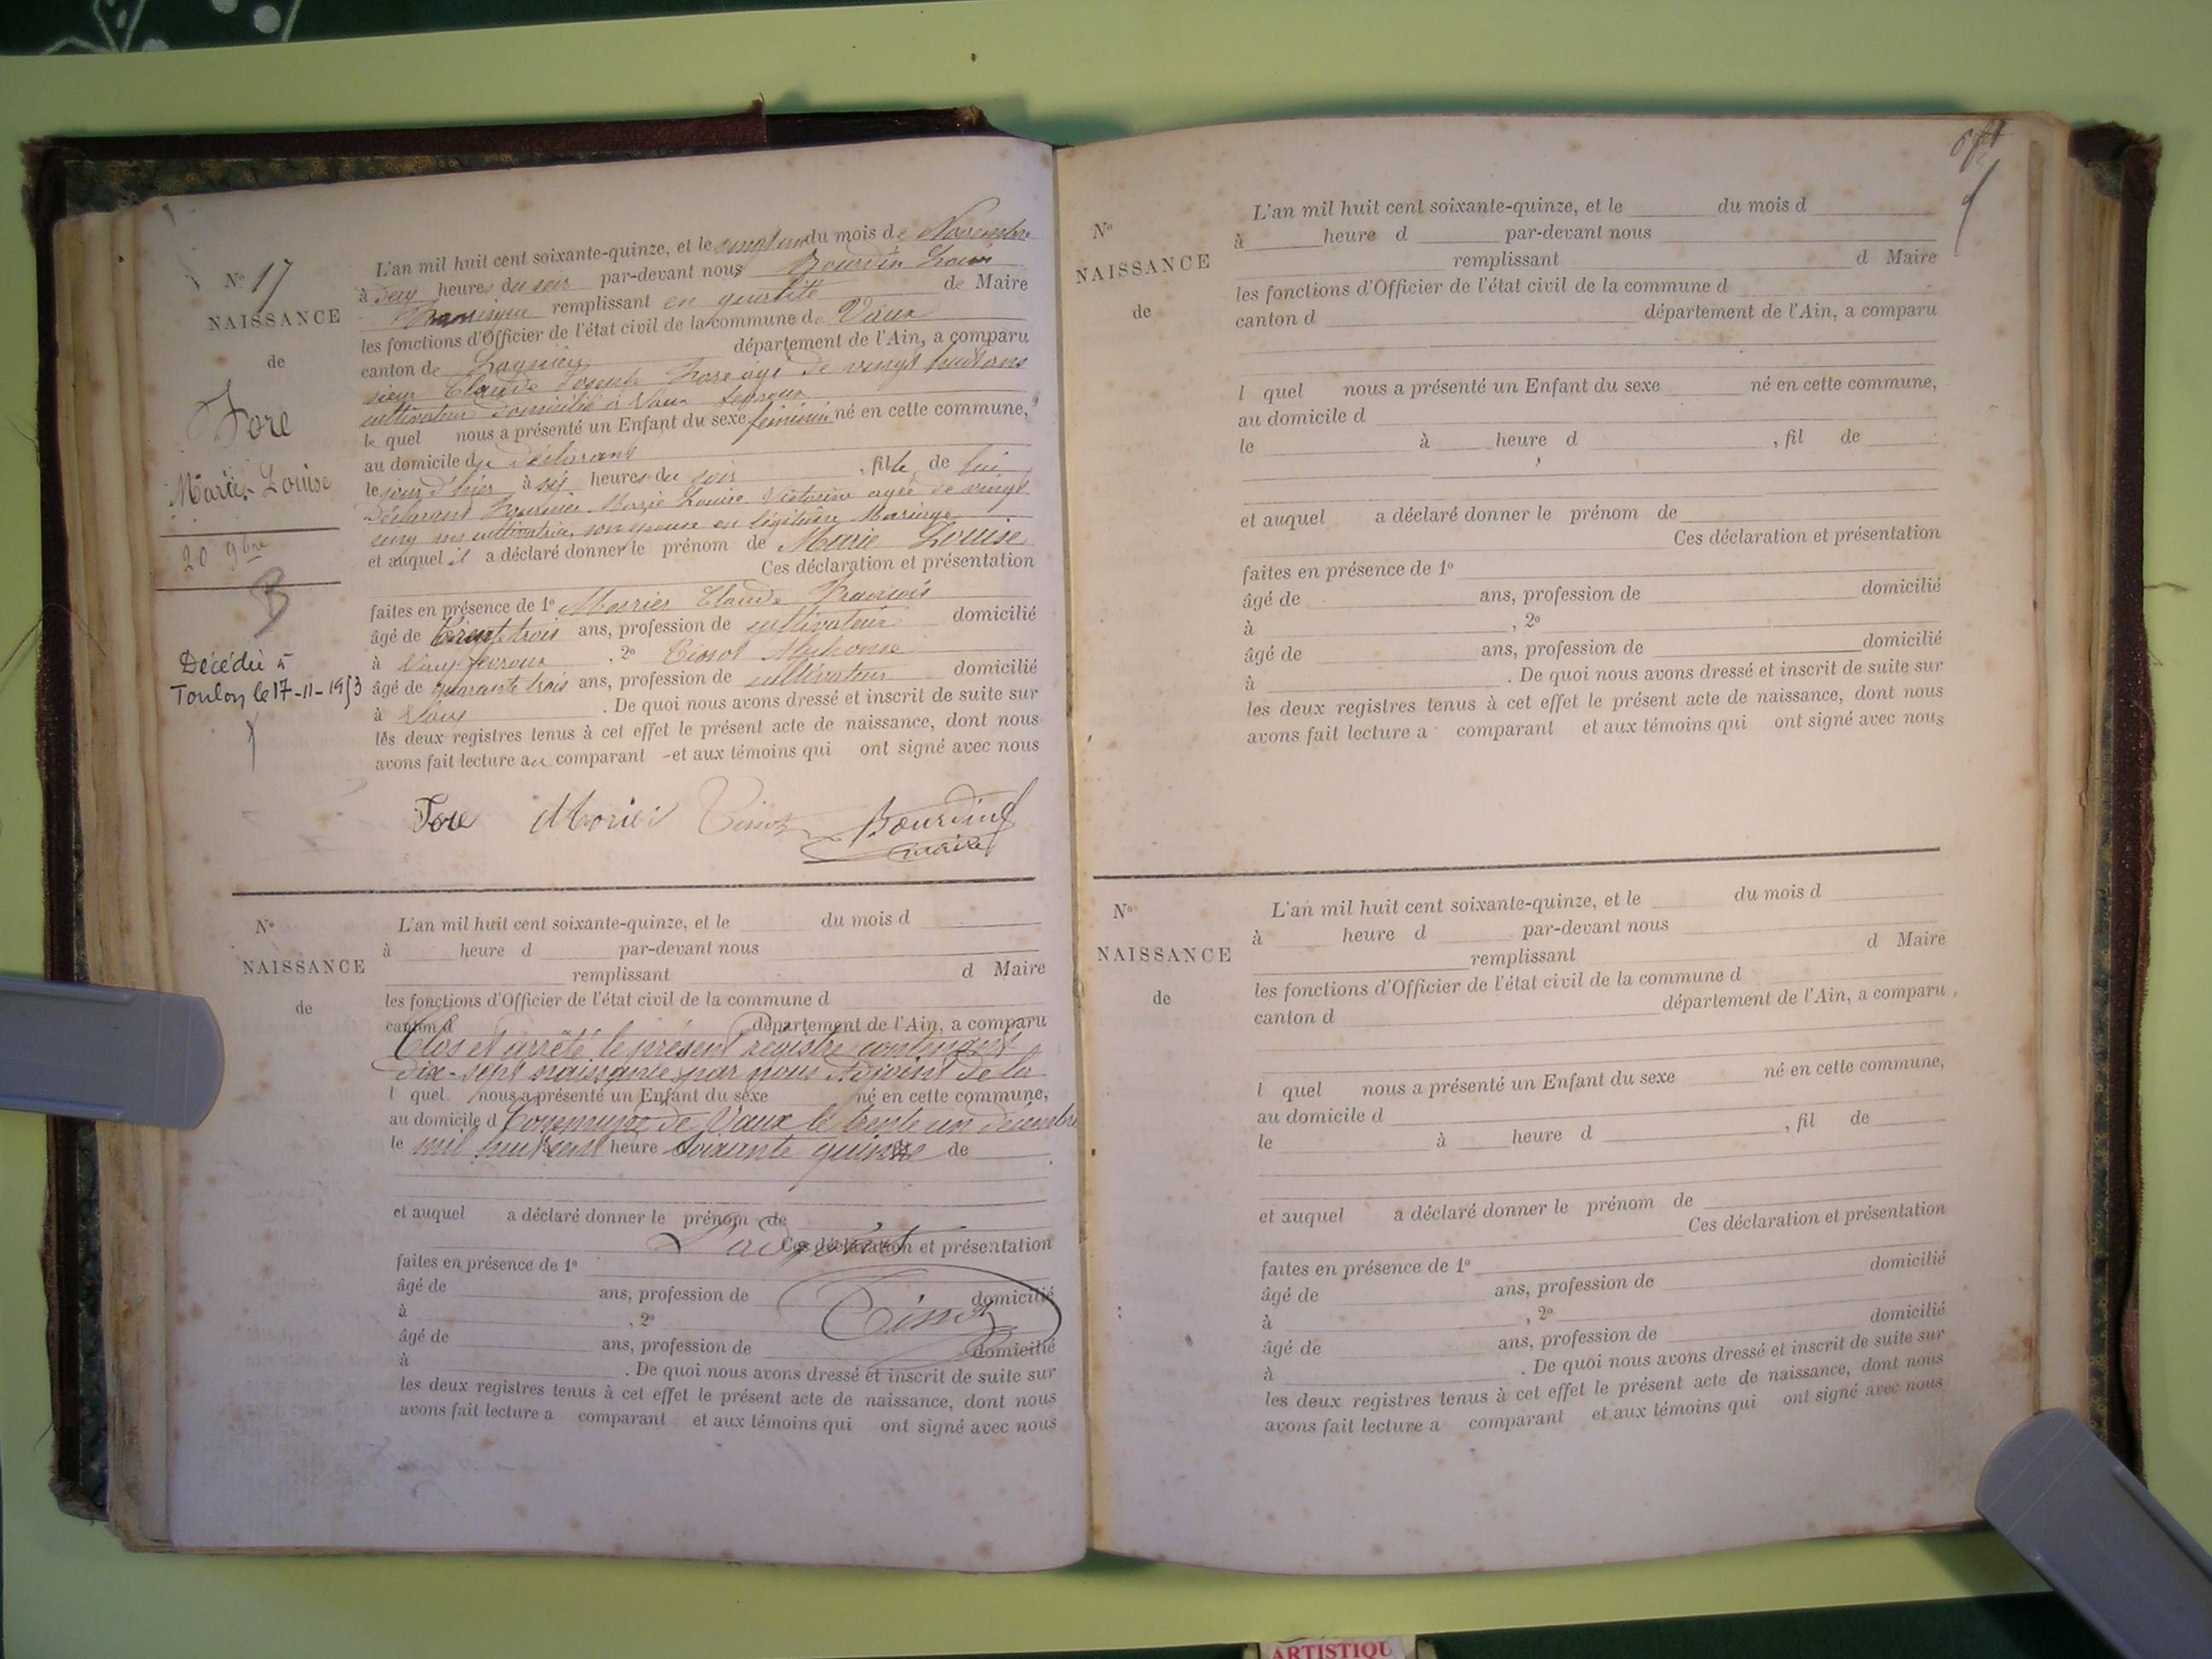 N° 17
NAISSANCE
de
Fore
Marie Louise
20 9bre
B
Décédée à
Toulon le 17-11-1953
L'an mil huit cent soixante-quinze, et le vingt un du mois de Novembre
à deux heures du soir par-devant nous Bourdin Louis
remplissant en qualité de Maire
les fonctions d'Officier de l'état civil de la commune de Vaux
canton de Lagnieu département de l'Ain, a comparu
sieur Claude Joseph Fore âgé de vingt huit ans
cultivateur domicilié à Vaux fevroux
le quel nous a présenté un Enfant du sexe féminin né en cette commune,
au domicile du déclarant
le jour d'hier à six heures du soir , fille de lui
Déclarant Marie Louise Victorine agée de vingt
cinq ans cultivatrice, son épouse en légitime Mariage
et auquel il a déclaré donner le prénom de Marie Louise
Ces déclaration et présentation
faites en présence de 1° Morrier Claude François
âgé de trente trois ans, profession de cultivateur domicilié
à Vaux fevroux , 2° Tissot Alphonse
âgé de quarante trois ans, profession de cultivateur domicilié
à Vaux . De quoi nous avons dressé et inscrit de suite sur
les deux registres tenus à cet effet le présent acte de naissance, dont nous
avons fait lecture au comparant et aux témoins qui ont signé avec nous
Fore Morier Tissot Bourdin
maire
N°
NAISSANCE
de
L'an mil huit cent soixante-quinze, et le du mois d
à heure d par-devant nous
remplissant d Maire
les fonctions d'Officier de l'état civil de la commune d
canton d département de l'Ain, a comparu
Clos et arrêté le présent registre contenant
dix-sept naissance par nous Adjoint de la
l quel nous a présenté un Enfant du sexe né en cette commune,
au domicile d Commune de Vaux le trente un décembre
le mil huit cent heure soixante quinze de
et auquel a déclaré donner le prénom de
L'adjoint Ces déclaration et présentation
faites en présence de 1°
âgé de ans, profession de domicilié
à , 2° Tissot
âgé de ans, profession de domicilié
à . De quoi nous avons dressé et inscrit de suite sur
les deux registres tenus à cet effet le présent acte de naissance, dont nous
avons fait lecture a comparant et aux témoins qui ont signé avec nous
N°
NAISSANCE
de
L'an mil huit cent soixante-quinze, et le du mois d
à heure d par-devant nous
remplissant d Maire
les fonctions d'Officier de l'état civil de la commune d
canton d département de l'Ain, a comparu
l quel nous a présenté un Enfant du sexe né en cette commune,
au domicile d
le à heure d , fil de
et auquel a déclaré donner le prénom de
Ces déclaration et présentation
faites en présence de 1°
âgé de ans, profession de domicilié
à , 2°
âgé de ans, profession de domicilié
à . De quoi nous avons dressé et inscrit de suite sur
les deux registres tenus à cet effet le présent acte de naissance, dont nous
avons fait lecture a comparant et aux témoins qui ont signé avec nous
N°
NAISSANCE
de
L'an mil huit cent soixante-quinze, et le du mois d
à heure d par-devant nous
remplissant d Maire
les fonctions d'Officier de l'état civil de la commune d
canton d département de l'Ain, a comparu
l quel nous a présenté un Enfant du sexe né en cette commune,
au domicile d
le à heure d , fil de
et auquel a déclaré donner le prénom de
Ces déclaration et présentation
faites en présence de 1°
âgé de ans, profession de domicilié
à , 2°
âgé de ans, profession de domicilié
à . De quoi nous avons dressé et inscrit de suite sur
les deux registres tenus à cet effet le présent acte de naissance, dont nous
avons fait lecture a comparant et aux témoins qui ont signé avec nous
ARTISTIQU